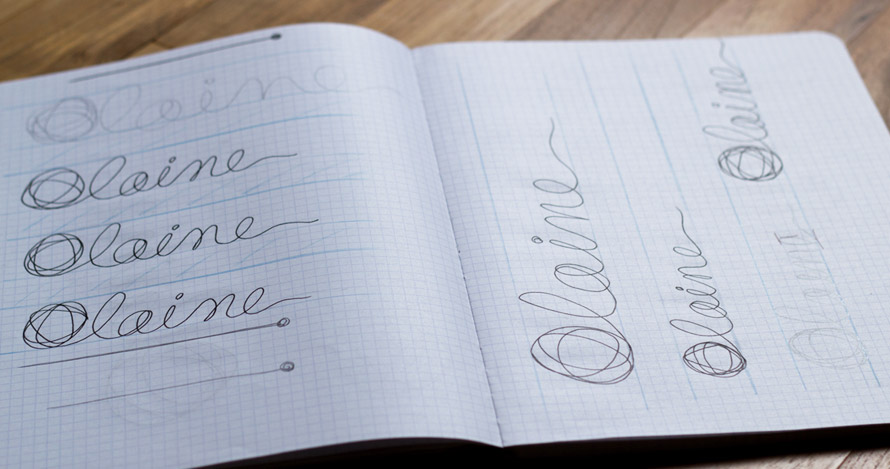 Olaine
Olaine
Olaine
Olaine
Olaine
Olaine
Olaine